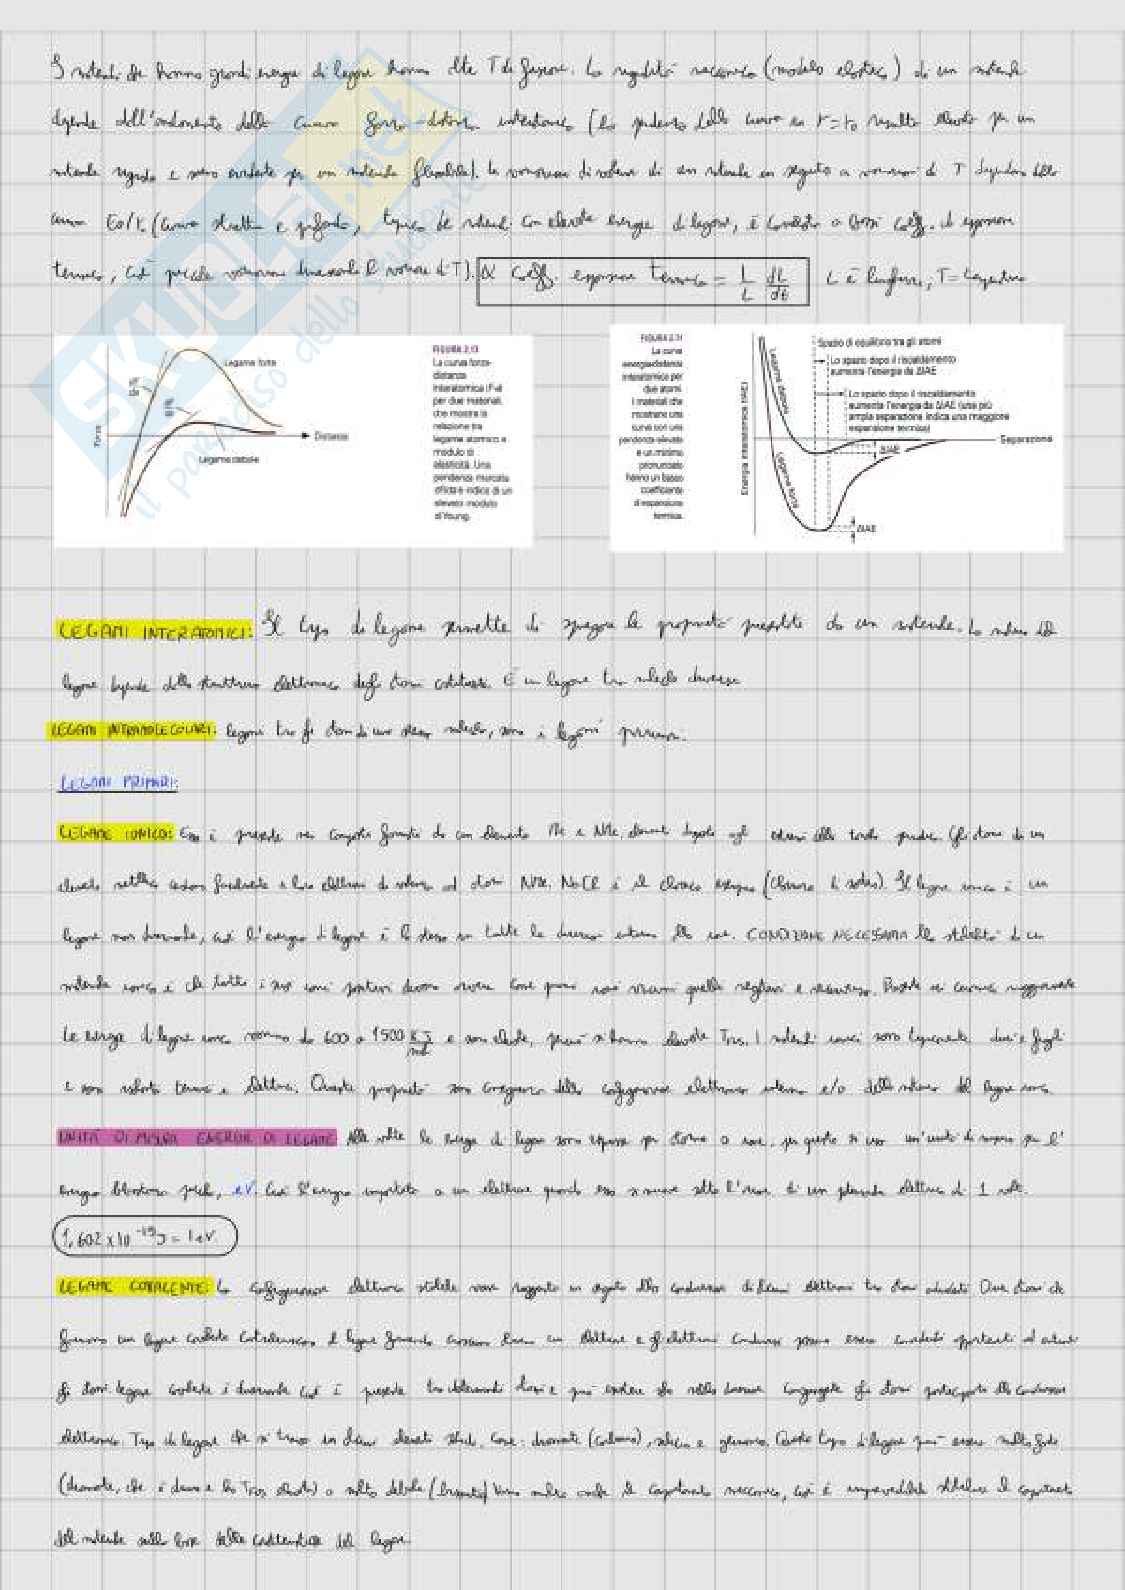 I materiali che hanno grandi energie di legame hanno alte T di fusione. La rigidità meccanica (modulo elastico) di un materiale
dipende dall'andamento della curva forza-distanza interatomica (la pendenza della curva in r=r₀ risulta elevata per un
materiale rigido e meno evidente per un materiale flessibile). La variazione di volume di un materiale in seguito a variazioni di T dipendono dalla
curva E₀/r. (curva stretta e profonda, tipica dei materiali con elevate energie di legame, è correlata a bassi coeff. di espansione
termico, cioè piccole variazioni dimensionali al variare di T). α coeff. espansione termico = 1/L dL/dt L è lunghezza, T = temperatura
SKUOLA.net
il paradiso dello studente
Forza
Legame forte
Legame debole
Distanza
FIGURA 2.13
La curva forza-
distanza
interatomica (F-a)
per due materiali,
che mostra la
relazione tra
legame atomico e
modulo di
elasticità. Una
pendenza marcata
dF/da è indice di un
elevato modulo
di Young.
FIGURA 2.11
La curva
energia-distanza
interatomica per
due atomi.
I materiali che
mostrano una
curva con una
pendenza elevata
e un minimo
pronunciato
hanno un basso
coefficiente
di espansione
termica.
Energia interatomica (IAE)
Legame debole
Legame forte
Spazio di equilibrio tra gli atomi
Lo spazio dopo il riscaldamento
aumenta l'energia da ΔIAE
Lo spazio dopo il riscaldamento
aumenta l'energia da ΔIAE (una più
ampia separazione indica una maggiore
espansione termica)
Separazione
ΔIAE
ΔIAE
LEGAMI INTERATOMICI: Il tipo di legame permette di spiegare le proprietà possedute da un materiale. La natura del
legame dipende dalla struttura elettronica degli atomi costituenti. È un legame tra molecole diverse
LEGAMI INTRAMOLECOLARI: legami tra gli atomi di una stessa molecola, sono i legami primari.
LEGAMI PRIMARI:
LEGAME IONICO: Esso è presente nei composti formati da un elemento Me e NMe, elementi disposti agli estremi della tavola periodica. Gli atomi di un
elemento metallico cedono facilmente i loro elettroni di valenza ad atomi NMe. NaCl è il classico esempio (cloruro di sodio). Il legame ionico è un
legame non direzionale, cioè l'energia di legame è la stessa in tutte le direzioni intorno allo ione. CONDIZIONE NECESSARIA alla stabilità di un
materiale ionico è che tutti i suoi ioni positivi devono avere come primi ioni vicini quelli negativi e viceversa.
Le energie di legame ionico variano da 600 a 1500 kJ/mol e sono elevate, perciò si hanno elevate Tfus. I materiali ionici sono tipicamente duri e fragili
e sono isolanti termici e elettrici. Queste proprietà sono conseguenza della configurazione elettronica interna e/o della natura del legame ionico.
UNITÀ DI MISURA ENERGIE DI LEGAME Alle volte le energie di legame sono espresse per atomo o ione, per questo si usa un'unità di misura per l'
energia abbastanza piccola, eV. Cioè l'energia impartita a un elettrone quando esso si muove sotto l'azione di un potenziale elettrico di 1 volt.
1,602 x 10⁻¹⁹J = 1eV
LEGAME COVALENTE: La configurazione elettronica stabile viene raggiunta in seguito alla condivisione di alcuni elettroni tra atomi adiacenti. Due atomi che
formano un legame covalente contribuiscono al legame fornendo ciascuno almeno un elettrone e gli elettroni condivisi possono essere considerati appartenenti ad entrambi
gli atomi. legame covalente è direzionale cioè è presente tra determinati atomi e può esistere solo nella direzione congiungente gli atomi partecipanti alla condivisione
elettronica. Tipo di legame che si trova in alcuni elementi solidi, come: diamante (carbonio), silicio e germanio. Questo tipo di legame può essere molto forte
(diamante, che è duro e ha Tfus elevata) o molto debole (bismuto)
del materiale sulla base delle caratteristiche del legame.